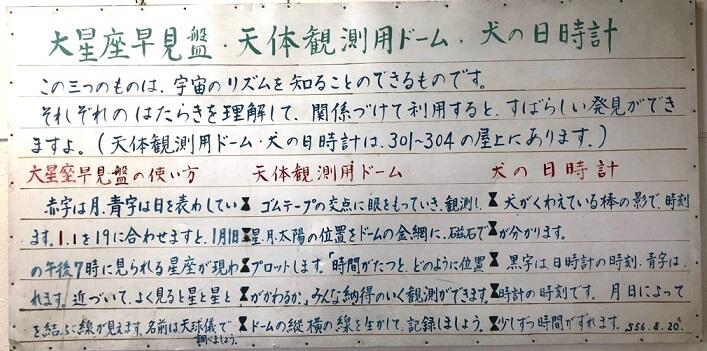 大星座早見盤・天体観測用ドーム・犬の日時計
この三つのものは、宇宙のリズムを知ることのできるものです。
それぞれの はたらきを理解して、関係づけて利用すると、すばらしい発見ができ
ますよ。(天体観測用ドーム・犬の日時計は、301~304の屋上にあります。)
大星座早見盤の使い方
赤字は月、青字は日を表わしてい
ます。1.1を19に合わせますと、1月1日
の午後7時に見られる星座が現わ
れます。近づいて、よく見ると星と星と
を結ぶ線が見えます。名前は天球儀で
調べましょう。
天体観測用ドーム
ゴムテープの交点に眼をもっていき、観測し、
星、月、太陽の位置をドームの金網に、磁石で
プロットします。「時間がたつと、どのように位置
がかわるか。」みんな納得のいく観測ができます。
ドームの縦横の線を生かして、記録しましょう。
犬の日時計
犬がくわえている棒の影で、時刻
が分かります。
黒字は、日時計の時刻、青字は、
時計の時刻です。 月日によって
少しずつ時間がずれます。 S56.8.20.